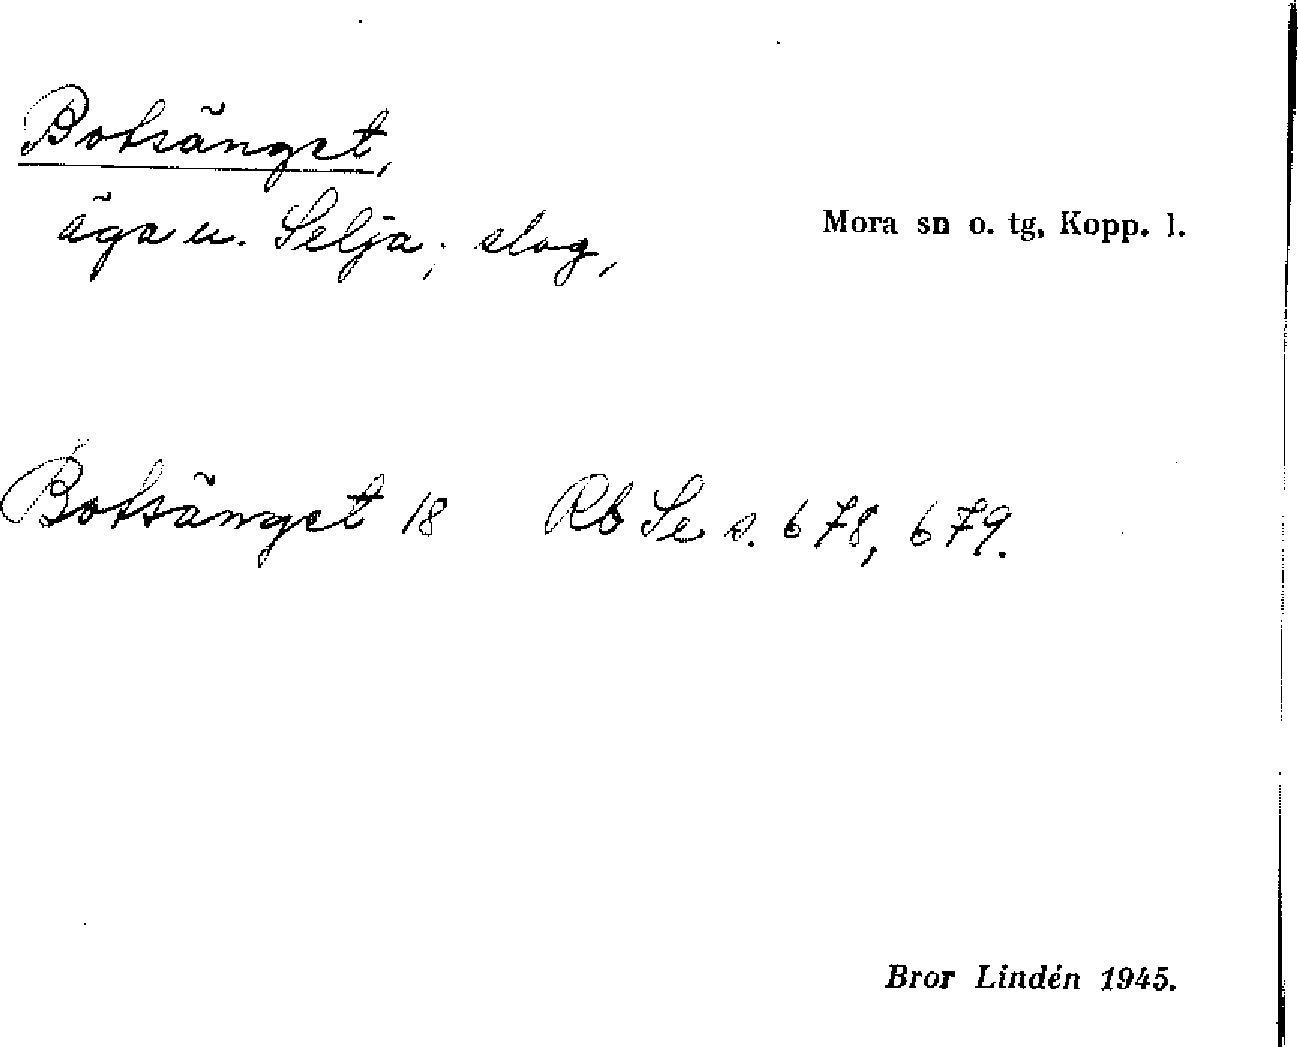 Botsänget,
äga u. Selja; slog,
Mora sn o. tg, Kopp. l.
Botsänget 18 Rb Se s. 678, 679.
Bror Lindén 1945.